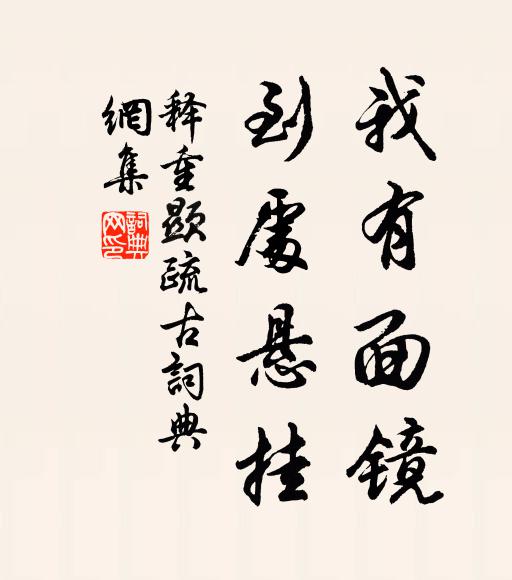 我有面镜
到處悬挂
释重显疏古詞典
網集
詞典网印